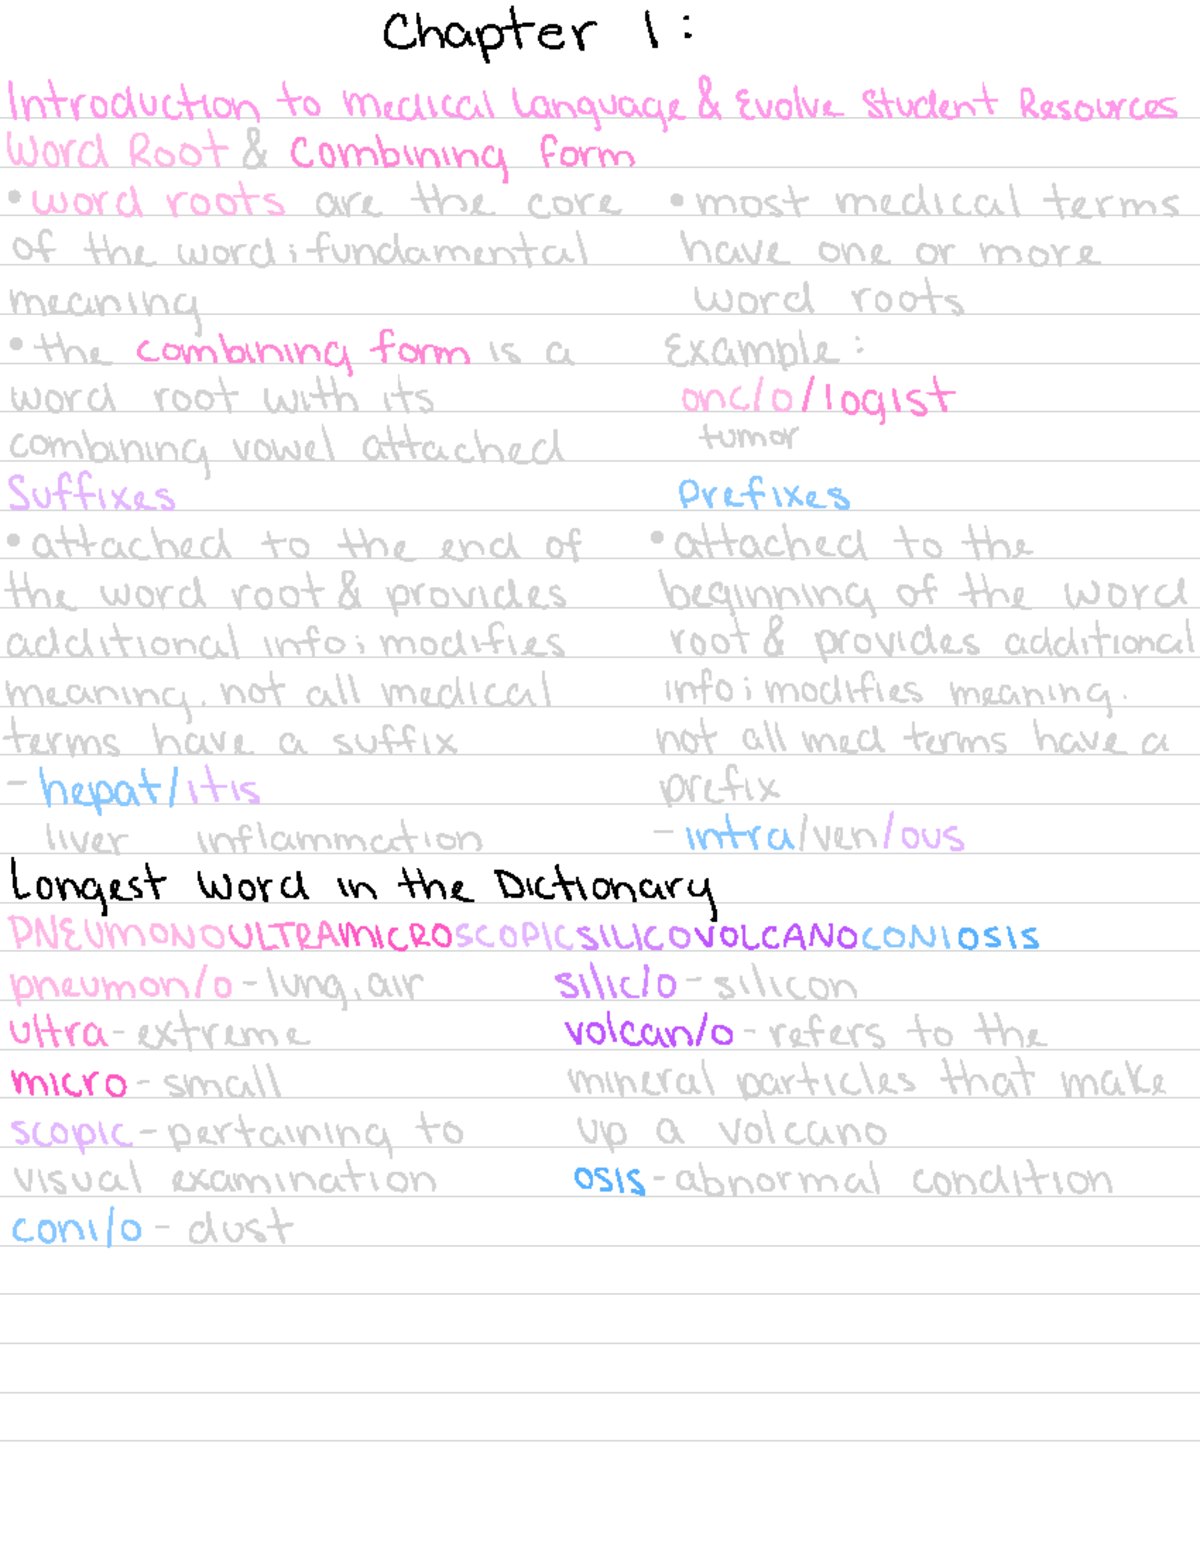 Chapter 1:
Introduction to medical Language & Evolve Student Resources
Word Root & Combining form
• word roots are the core
of the word; fundamental
meaning
• the combining form is a
word root with its
combining vowel attached
• most medical terms
have one or more
word roots
Example:
onc/o/logist
tumor
Suffixes
• attached to the end of
the word root & provides
additional info; modifies
meaning. not all medical
terms have a suffix
- hepat/itis
liver inflammation
Prefixes
• attached to the
beginning of the word
root & provides additional
info; modifies meaning.
not all med terms have a
prefix
- intra/ven/ous
Longest Word in the Dictionary
PNEUMONOULTRAMICROSCOPICSILICOVOLCANOCONIOSIS
pneumon/o - lung, air
ultra - extreme
micro - small
scopic - pertaining to
visual examination
coni/o - dust
silic/o - silicon
volcan/o - refers to the
mineral particles that make
up a volcano
osis - abnormal condition